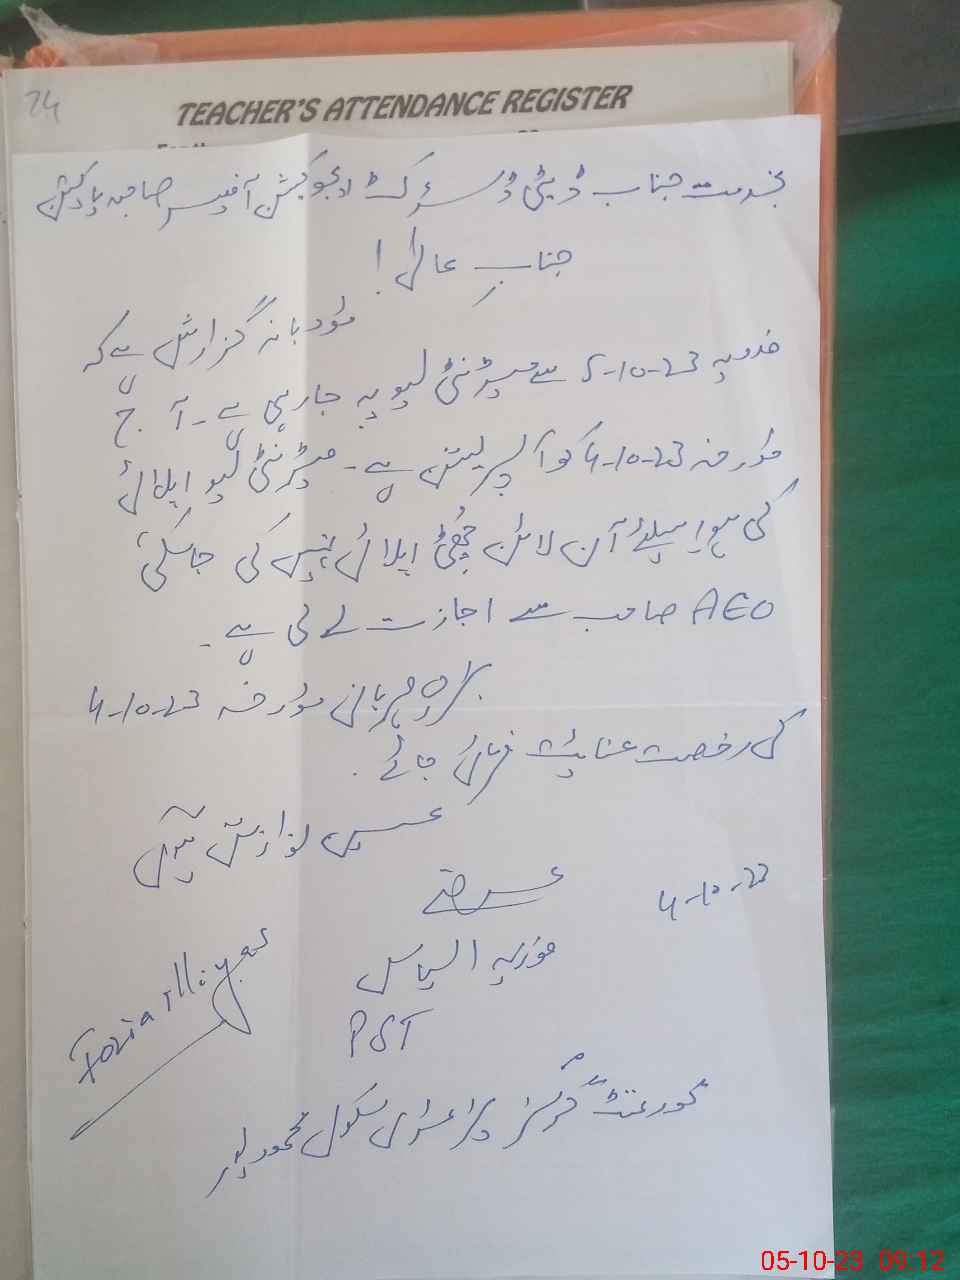 24
TEACHER'S ATTENDANCE REGISTER
بخدمت جناب ڈپٹی ڈسٹرکٹ ایجوکیشن آفیسر صاحبہ
جنابِ عالی!
مؤدبانہ گزارش ہے کہ
فدویہ 5-10-23 سے میٹرنٹی لیو پہ جا رہی ہے۔ آج
مؤرخہ 4-10-23 کو آپریشن ہے۔ میٹرنٹی لیو اپلائی
کی ہوا سیلئے آن لائن چھٹی اپلائی نہیں کی جا سکتی
AEO صاحب سے اجازت لے لی ہے۔
براہ مہربانی مؤرخہ 4-10-23
کی رخصت عنایت فرمائی جائے۔
عین نوازش ہوگی
4-10-23
عرضے
فوزیہ الیاس
Fozia Illiyas
PST
گورنمنٹ گرلز پرائمری سکول محمود پور
05-10-23 09:12